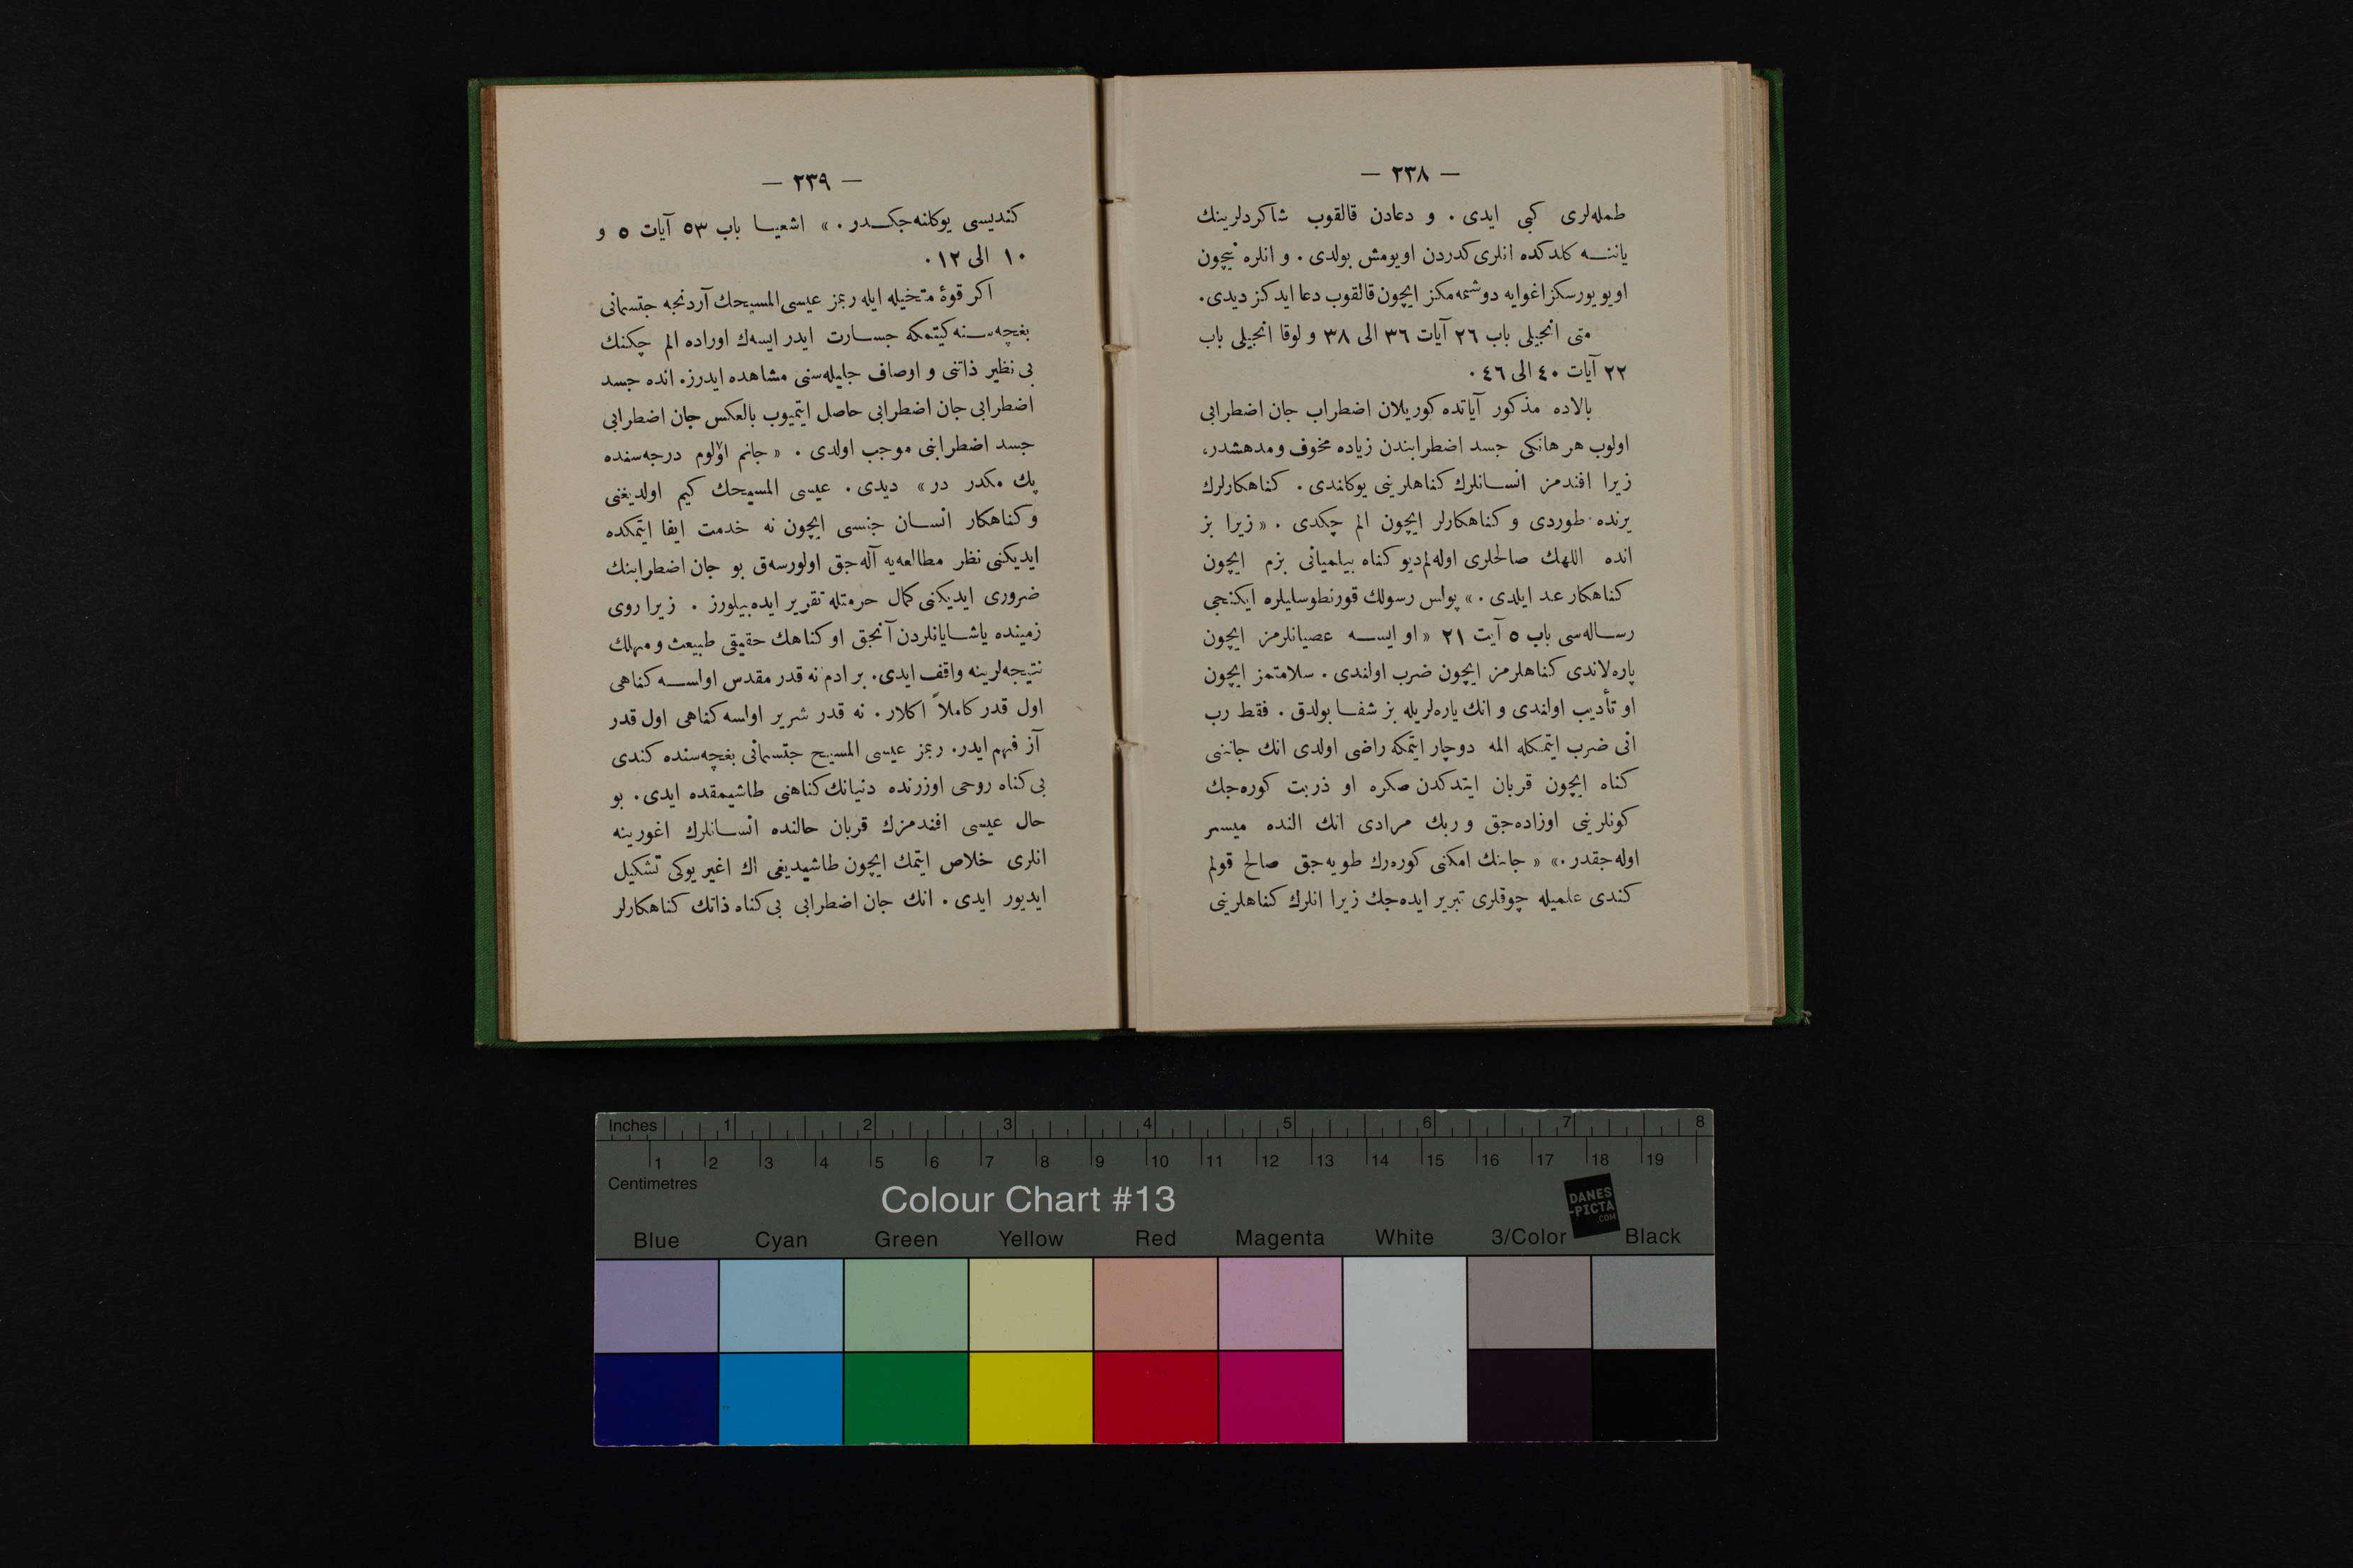 — ٢٣٨ —
طمله‌لری كبی ایدی . و دعادن قالقوب شاكردلرینك
یاننه كلدكده انلری كدردن اویومش بولدی . و انلره نیچون
اویو یورسكز اغوایه دوشمه‌مكز ایچون قالقوب دعا ایدكز دیدی.
متی انجیلی باب ٢٦ آیات ٣٦ الی ٣٨ و لوقا انجیلی باب
٢٢ آیات ٤٠ الی ٤٦ .
بالاده مذكور آیاتده كوریلان اضطراب جان اضطرابی
اولوب هر هانكی جسد اضطرابندن زیاده مخوف ومدهشدر،
زیرا افندمز انسانلرك كناهلرینی یوكلندی . كناهكارلرك
یرنده طوردی و كناهكارلر ایچون الم چكدی . « زیرا بز
انده اللهك صالحلری اوله‌لم‌دیو كناه بیلمیانی بزم ایچون
كناهكار عد ایلدی . » پولس رسولك قورنطوسلیلره ایكنجی
رساله‌سی باب ٥ آیت ٢١ « او ایسه عصیانلرمز ایچون
پاره‌لاندی كناهلرمز ایچون ضرب اولندی . سلامتمز ایچون
او تأدیب اولندی و انك یاره‌لریله بز شفا بولدق . فقط رب
انی ضرب ایتمكله المه دوچار ایتمكه راضی اولدی انك جاننی
كناه ایچون قربان ایتدكدن صكره او ذریت كوره‌جك
كونلرینی اوزاده‌جق و ربك مرادی انك النده میسر
اوله‌جقدر .» « جاننك امكنی كوره‌رك طویه‌جق صالح قولم
كندی علمیله چوقلری تبریر ایده‌جك زیرا انلرك كناهلرینی
— ٢٣٩ —
كندیسی یوكلنه‌جكدر . » اشعیا باب ٥٣ آیات ٥ و
١٠ الی ١٢ .
اكر قوهٔ متخیله ایله ربمز عیسی المسیحك آردنجه جتسمانی
بغچه‌سنه كیتمكه جسارت ایدر ایسه‌ك اوراده الم چكنك
بی نظیر ذاتنی و اوصاف جلیله‌سنی مشاهده ایدرز. انده جسد
اضطرابی جان اضطرابی حاصل ایتمیوب بالعكس جان اضطرابی
جسد اضطرابنی موجب اولدی . « جانم اؤلوم درجه‌سنده
پك مكدر در » دیدی . عیسی المسیحك كیم اولدیغنی
و كناهكار انسان جنسی ایچون نه خدمت ایفا ایتمكده
ایدیكنی نظر مطالعه‌یه آله‌جق اولورسه‌ق بو جان اضطرابنك
ضروری ایدیكنی كمال حرمتله تقریر ایده‌بیلورز . زیرا روی
زمینده یاشایانلردن آنجق او كناهك حقیقی طبیعت و مهلك
نتیجه‌لرینه واقف ایدی. بر ادم نه قدر مقدس اولسه كناهی
اول قدر كاملاً اكلار . نه قدر شریر اولسه كناهی اول قدر
آز فهم ایدر. ربمز عیسی المسیح جتسمانی بغچه‌سنده كندی
بی كناه روحی اوزرنده دنیانك كناهنی طاشیمقده ایدی . بو
حال عیسی افندمزك قربان حالنده انسانلرك اغورینه
انلری خلاص ایتمك ایچون طاشیدیغی اك اغیر یوكی تشكیل
ایدیور ایدی . انك جان اضطرابی بی كناه ذاتك كناهكارلر
Inches 1 2 3 4 5 6 7 8
1 2 3 4 5 6 7 8 9 10 11 12 13 14 15 16 17 18 19
Centimetres
Colour Chart #13
DANES
-PICTA
.COM
Blue Cyan Green Yellow Red Magenta White 3/Color Black